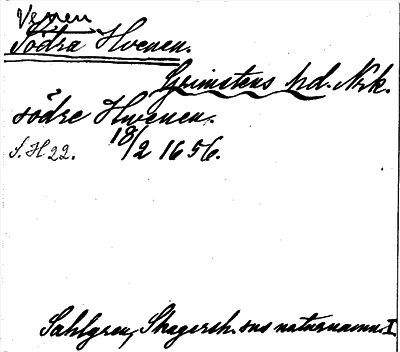 Venen
Södra Hvenen.
Grimstens hd. Nrk.
södre Hwenen.
S. H 22. 18/2 1656.
Sahlgren, Skagersh. sns naturnamn. I